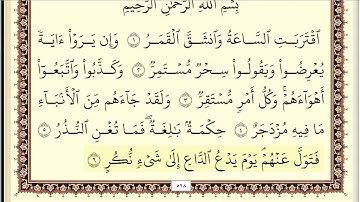 بِسْمِ اللَّهِ الرَّحْمَٰنِ الرَّحِيمِ
ٱقْتَرَبَتِ ٱلسَّاعَةُ وَٱنشَقَّ ٱلْقَمَرُ ١ وَإِن يَرَوْا۟ ءَايَةً
يُعْرِضُوا۟ وَيَقُولُوا۟ سِحْرٌ مُّسْتَمِرٌّ ٢ وَكَذَّبُوا۟ وَٱتَّبَعُوٓا۟
أَهْوَآءَهُمْ ۚ وَكُلُّ أَمْرٍ مُّسْتَقِرٌّ ٣ وَلَقَدْ جَآءَهُم مِّنَ ٱلْأَنۢبَآءِ
مَا فِيهِ مُزْدَجَرٌ ٤ حِكْمَةٌۢ بَٰلِغَةٌ ۖ فَمَا تُغْنِ ٱلنُّذُرُ ٥
فَتَوَلَّ عَنْهُمْ ۘ يَوْمَ يَدْعُ ٱلدَّاعِ إِلَىٰ شَىْءٍ نُّكُرٍ ٦
٥٢٨